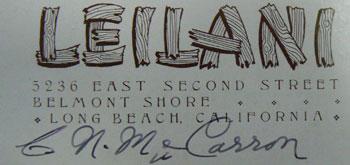 LEILANI
5236 EAST SECOND STREET
BELMONT SHORE
LONG BEACH, CALIFORNIA
C N. Mc Carron